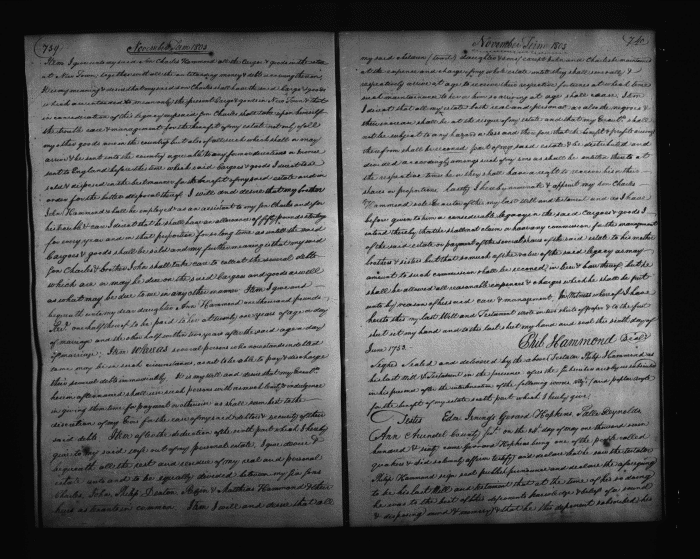 739 November Term 1803
Item I give unto my said son Charles Hammond all the Cargo & goods in the store
at New Town, together with all the outstanding money & debts
It is my meaning & desire that my said son Charles shall have the said Cargo & goods
which are intended to mean only the present Cargo & goods in New Town & that
in consideration of this legacy my said son Charles shall take upon himself
the trouble care and management for the benefit of my estate not only of all
my other goods now in the country but also of all such which shall or may
arrive & be sent into the country agreeable to any former directions or moneys
sent to England before this time which said Cargoes & goods I direct to be
sold & disposed in the best manner for the benefit of my said estate and in
order for the better disposal thereof I will and desire that my brother
John Hammond shall be employed as an assistant to my son Charles and for
his trouble & care I direct that he shall have an allowance of fifty pounds sterling
for every year and in that proportion for so long time as until the said
Cargoes & goods shall be sold and my further meaning is that my said
son Charles & brother John shall take care to collect the several debts
which are or may be due on the said Cargoes and goods as well
as what may be due to me in any other manner Item I give and
bequeath unto my dear daughter Ann Hammond one thousand pounds
one half thereof to be paid to her at twenty one years of age or day
of marriage and the other half within two years after the said age or day
of marriage. Item whereas several persons who now stand indebted
to me may be in such circumstances as not to be able to pay & discharge
their several debts immediately It is my will and desire that my Execut.rs
herein afternamed shall use such persons with as much lenity & indulgence
in giving them time for payment
discretion of my Exrs for the care of my said debts & security of the
said debts Item after the deduction of the sixth part which I hereby
give to my said wife out of my personal estate, I give devise &
bequeath all the rest and residue of my real and personal
estate unto and to be equally divided between my six sons
Charles, John, Philip, Denton, Rezin & Matthias Hammond & their
heirs as tenants in common Item I will and desire that all
November Term 1803 740
my said children (to wit) daughter & sons, except John and Charles be maintained
at the expence and charge of my whole estate until they shall severally &
respectively arrive at age to receive their respective fortunes at which time
such maintenance to her or him so arriving at age shall cease. Item
I direct that all my estate both real and personal as also the negroes &
their increase shall be at the risque of my estate and that my Execut.rs shall
not be subject to any hazard or loss and therefore that the benefit & profits arising
therefrom shall be reckoned part of my said estate & be distributed and
divided accordingly amongst such of my sons as shall be entitled thereto at
the respective times he or they shall have a right to receive his or their
shares or proportions. Lastly I hereby nominate & appoint my son Charles
Hammond sole Executor of this my last Will and Testament and as I have
before given to him a considerable legacy in the said Cargoes & goods I
intend thereby that he shall not claim or have any commission for the management
of the said estate or payment of the several shares of the said estate to his mother
brothers & sister but that so much of the value of the said legacy as may
amount to such commission shall be reckoned in lieu & bar thereof but he
shall be allowed all reasonable expences & charges which he shall be put
unto by reason of his said care & management. In Witness whereof I have
hereto this my last Will and Testament wrote on two sheets of paper & to the first
sheet set my hand and to this last sheet my hand and seal this sixth day of
June 1753. Phil Hammond Seal
Signed Sealed and delivered by the above Testator Philip Hammond as
his last Will & Testament in the presence of us the Subscribers who subscribed
in his presence after the interlineation of the following words viz.
for the benefit of my estate sixth part which I hereby give.
Testes Edm Jenings Gerrard Hopkins Tille Reynolds
Ann Arundel County Sct. on the day of May one thousand seven
hundred & sixty came Gerrard Hopkins being one of the people called
Quakers & did solemnly affirm testify and declare that he saw the testator
Philip Hammond sign seal publish pronounce and declare the aforegoing
to be his last Will and testament that at the time of his so doing
he was to the best of this deponents knowledge & belief of a sound
& disposing mind & memory & that he this deponent subscribed his